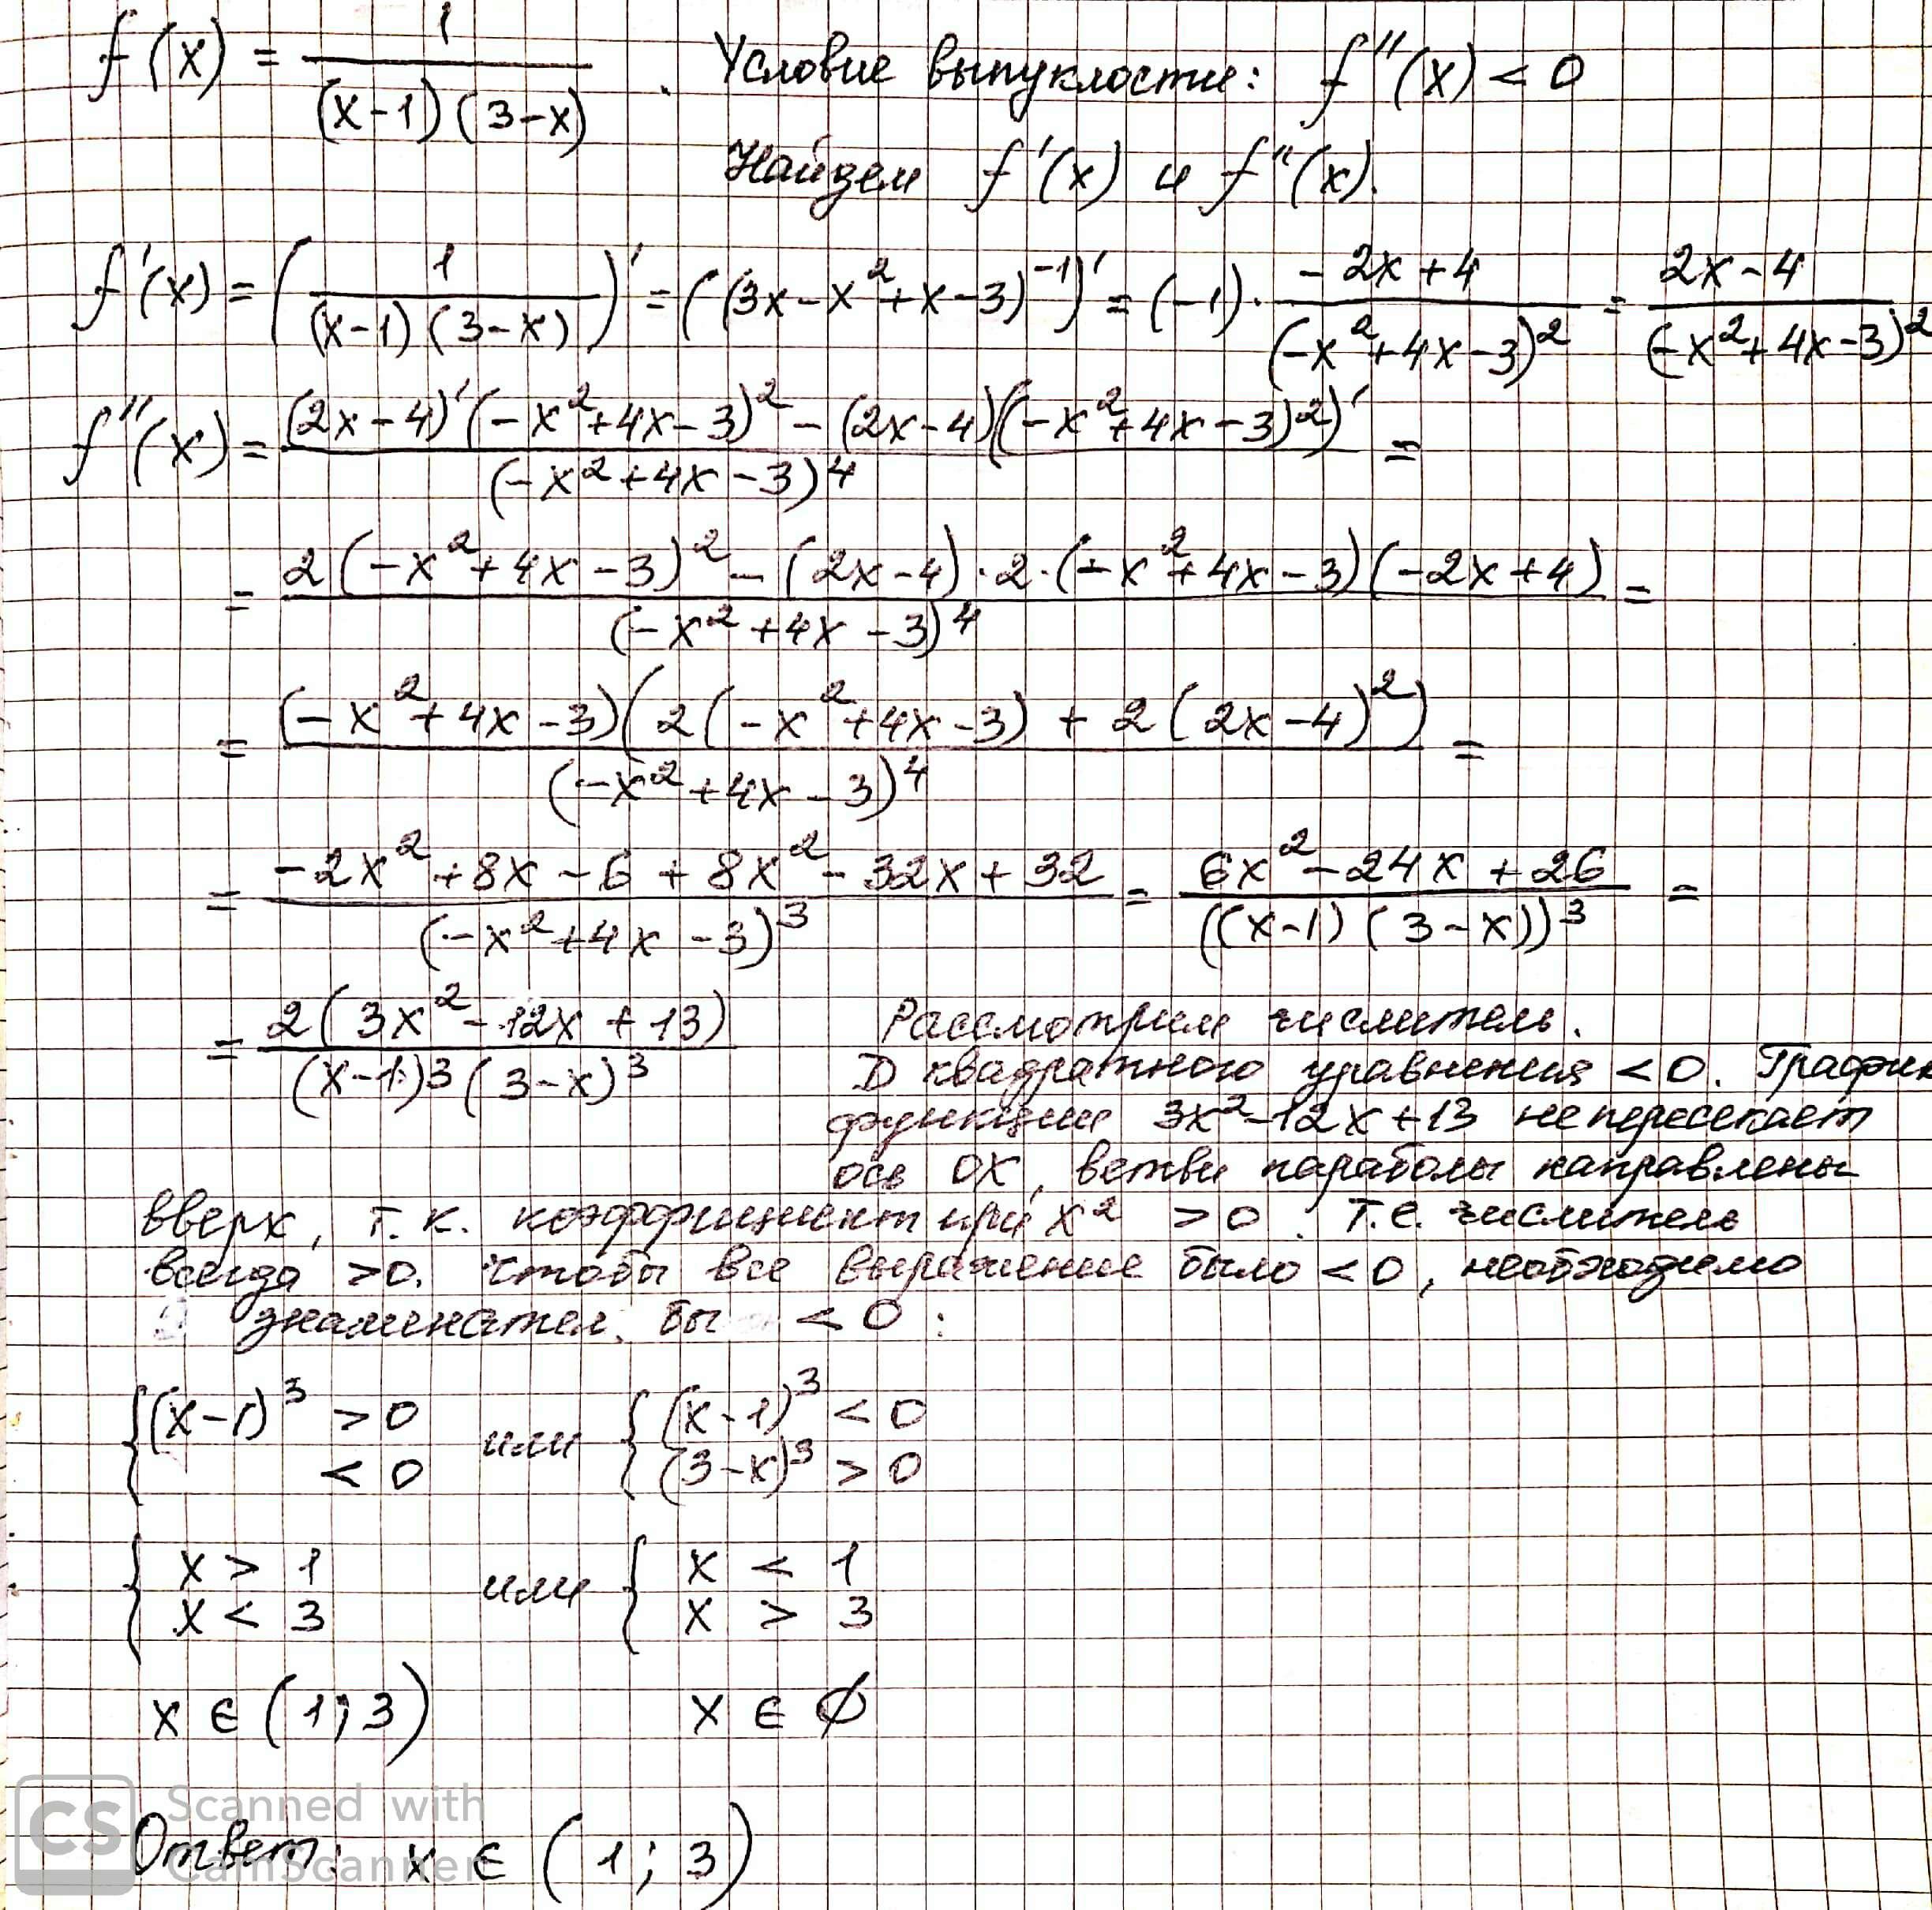 f(x) = 1/((x-1)(3-x)). Условие выпуклости: f''(x) < 0
Найдем f'(x) и f''(x).
f'(x) = (1/((x-1)(3-x)))' = ((3x-x²+x-3)⁻¹)' = (-1)·(-2x+4)/(-x²+4x-3)² = (2x-4)/(-x²+4x-3)²
f''(x) = ((2x-4)'(-x²+4x-3)² - (2x-4)((-x²+4x-3)²)')/(-x²+4x-3)⁴ =
= (2(-x²+4x-3)² - (2x-4)·2·(-x²+4x-3)(-2x+4))/(-x²+4x-3)⁴ =
= ((-x²+4x-3)(2(-x²+4x-3) + 2(2x-4)²))/(-x²+4x-3)⁴ =
= (-2x²+8x-6+8x²-32x+32)/(-x²+4x-3)³ = (6x²-24x+26)/((x-1)(3-x))³ =
= 2(3x²-12x+13)/((x-1)³(3-x)³)
Рассмотрим числитель.
D квадратного уравнения <0. График
функции 3x²-12x+13 не пересекает
ось OX, ветви параболы направлены
вверх, т.к. коэффициент при x² >0. Т.е. числитель
всегда >0. Чтобы все выражение было <0, необходимо
знаменател. бы < 0:
{(x-1)³ > 0 или {(x-1)³ < 0
< 0 (3-x)³ > 0
{x > 1 или {x < 1
x < 3 x > 3
x ∈ (1;3) x ∈ ∅
Ответ: x ∈ (1;3)
CS Scanned with
CamScanner